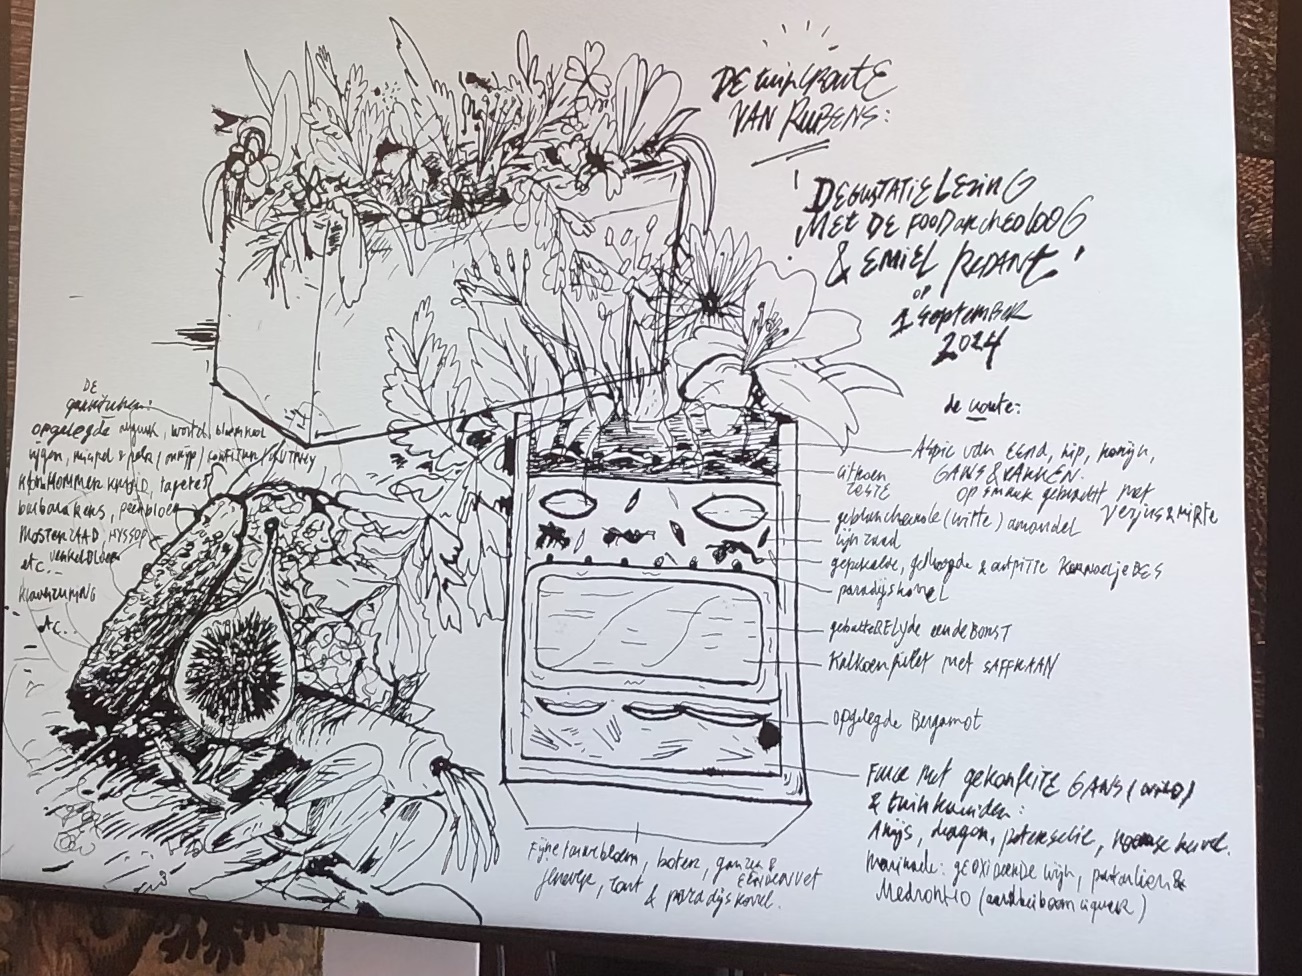 DE tuincroute
VAN RUBENS:
DEGUSTATIELEZING
MET DE FOODARCHEOLOOG
& EMIEL REDANT!
op
1 September
2024
de route:
Aspic van Eend, kip, konijn,
GANS & VARKEN.
op smaak gebracht met
Verjus & MIRTE
citroen
ZESTE
geblancheerde (witte) amandel
lijnzaad
gepekelde, gedroogde & ontpitte KORNOELJEBES
paradijskorrel
geboterde eendeBORST
Kalkoenfilet met SAFFRAAN
opgelegde Bergamot
Farce met gekonfijte GANS
& tuinkruiden:
Anijs, dragon, peterselie, roomse kervel.
Marinade: geoxideerde wijn,
Medronho (aardbeiboom liqueur)
Fijne tarwebloem, boter, ganzen &
EENDENVET
jenever, zout & paradijskorrel.
DE
garnituren:
opgelegde wortel, bloemkool
vijgen,
KOMKOMMERKRUID,
MOSTERDZAAD, HYSSOP
etc... venkelbloem
klaverzuring
etc...